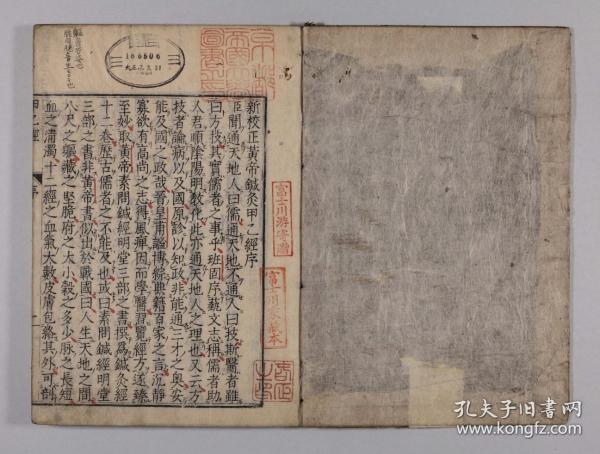 新校正黃帝鍼灸甲乙經序
臣聞通天地人曰儒通天地不通人曰技斯醫者雖
曰方技其實儒者之事乎班固序藝文志稱儒者助
人君順陰陽明教化此亦通天地人之理也又云方
技者論病以及國原診以知政非能通三才之奧安
能及國之政哉晉皇甫謐博綜典籍百家之言沉靜
寡欲有高尚之志得風痺因而學醫習覽經方遂臻
至妙取黃帝素問鍼經明堂三部之書撰爲鍼灸經
十二卷歷古儒者之不能及也或曰素問鍼經明堂
三部之書非黃帝書似出於戰國曰人生天地之間
八尺之軀藏之堅脆府之大小穀之多少脉之長短
血之清濁十二經之血氣大數皮膚包絡其外可剖
甲乙經
序
一
富士川游寄贈
富士川家藏本
京都
帝國大學
圖書之印
186606
孔夫子旧书网
www.kongfz.com